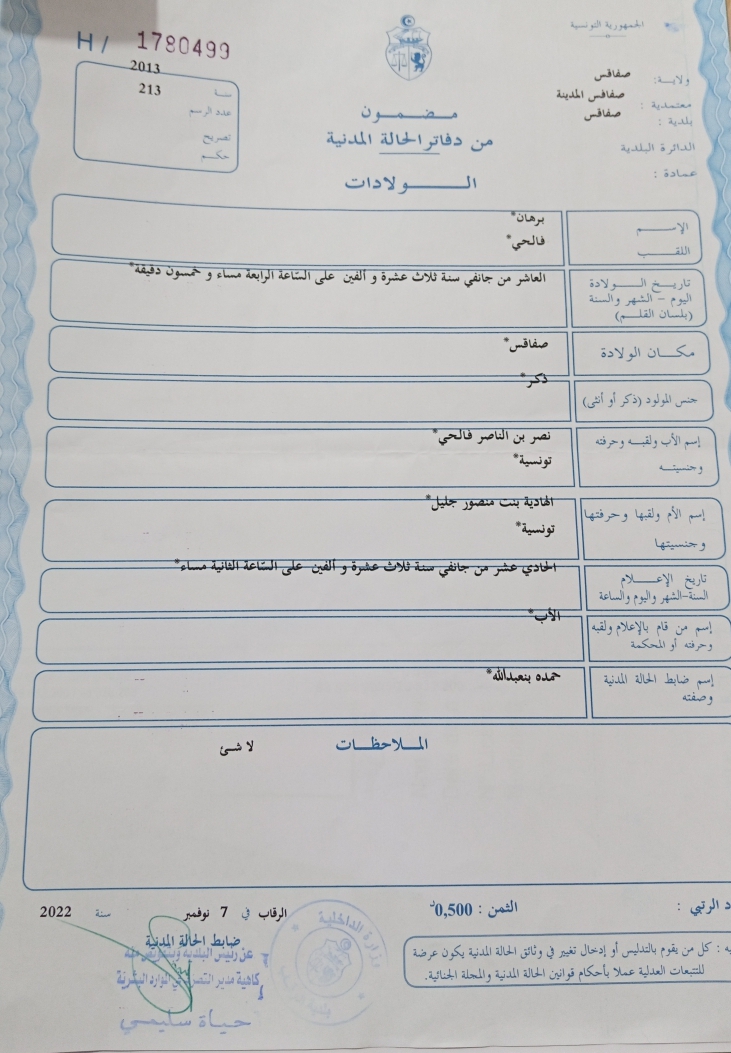 الجمهورية التونسية
H/ 1780499
ولايـــة: صفاقس
معتمدية : صفاقس المدينة
بلدية : صفاقس
الدائرة البلدية
عمادة :
2013 سنة
213 عدد الرسم
تصريح
حكـــم
مضمـــــون
من دفاتر الحالة المدنية
الـــــــولادات
الإســــم برهان*
اللقـــب فالحي*
تاريــخ الــــولادة العاشر من جانفي سنة ثلاث عشرة و ألفين على السّاعة الرابعة مساء و خمسون دقيقة*
اليوم – الشهر والسنة
(بلسان القلـــم)
مكـــان الولادة صفاقس*
جنس المولود (ذكر أو أنثى) ذكر*
إسم الأب ولقبـــه وحرفته نصر بن الناصر فالحي*
وجنسيتـــه تونسية*
إسم الأم ولقبها وحرفتها الهادية بنت منصور جليل*
وجنسيتها تونسية*
تاريخ الإعــــلام الحادي عشر من جانفي سنة ثلاث عشرة و ألفين على السّاعة الثانية مساء*
السنة-الشهر واليوم والساعة
إسم من قام بالإعلام ولقبه الأب*
وحرفته أو المحكمة
إسم ضابط الحالة المدنية حمده بنعبدالله*
وصفته
الملاحظات
لا شئ
د الرتبي :
الثمن : 0,500د
الرقاب في 7 نوفمبر سنة 2022
ضابط الحالة المدنية
عن رئيس البلدية وبتفويض منه
كاهية مدير التصرف في الموارد البشرية
حياة سليمي
وزارة الداخلية
يه : كل من يقوم بالتدليس أو إدخال تغيير في وثائق الحالة المدنية يكون عرضة
للتتبعات العدلية عملا بأحكام قوانين الحالة المدنية والمجلة الجنائية.